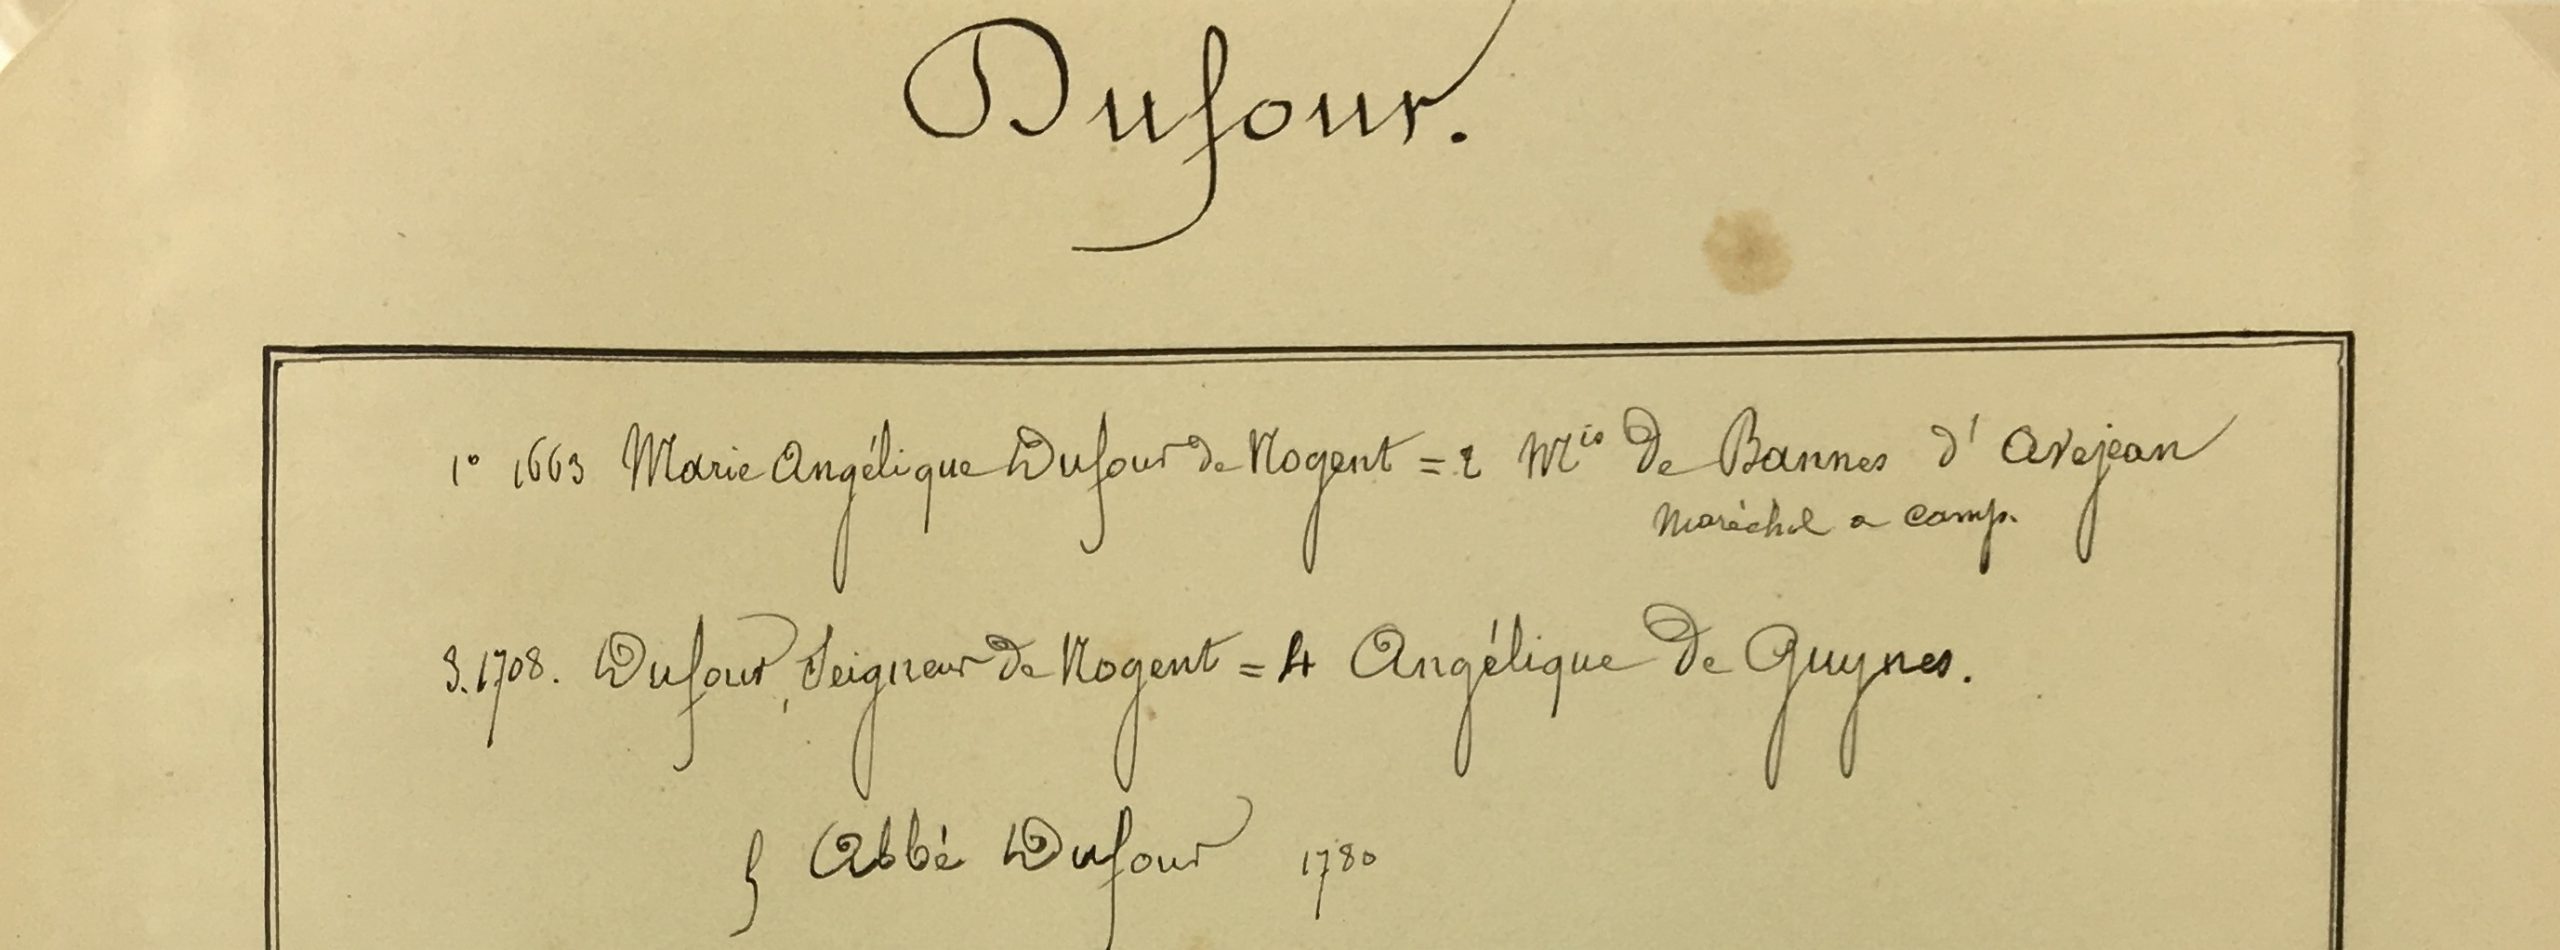 Dufour.
1° 1663 Marie Angélique Dufour de Nogent = 2 Mis de Bannes d' Avejean
Maréchal a camp.
3. 1708. Dufour, Seigneur de Nogent = 4 Angélique de Guynes.
Abbé Dufour 1780